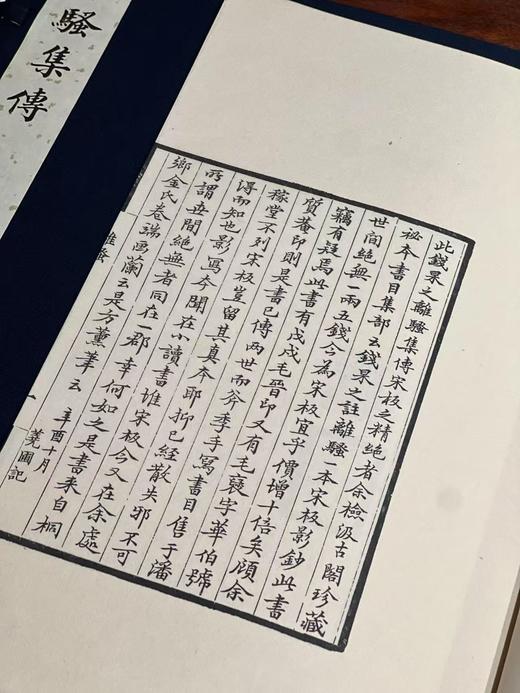 騷集傳
此錢杲之離騷集傳宋板之精絕者余檢汲古閣珍藏
秘本書目集部云錢杲之註離騷一本宋板影鈔此書
世間絕無一兩五錢今為宋板宜乎價增十倍矣顧余
竊有疑焉此書有戊戌毛晉印又有毛襃字華伯號
質菴印則是書已傳兩世而斧季手寫書目售于潘
稼堂不列宋板豈留其真本耶抑已經散失邪不可
得而知也影寫今聞在小讀書堆宋板今又在余處
所謂世間絕無者同在一郡幸何如之是書來自桐
鄉金氏卷端画蘭云是方薰筆云
辛酉十月
蕘圃記